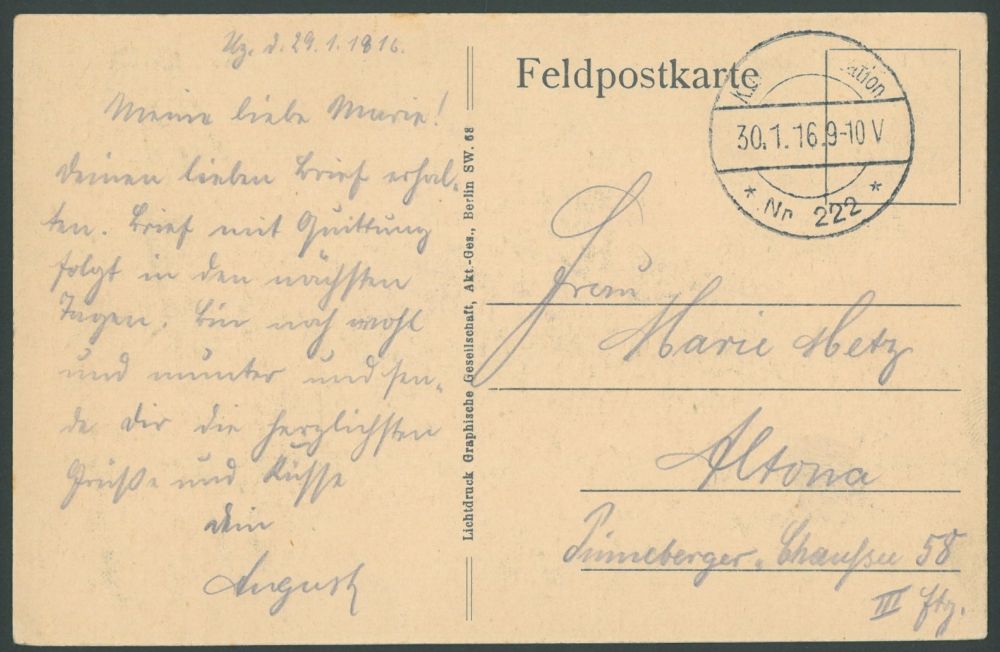 Uz. d. 29.1.1916.
Meine liebe Marie!
Deinen lieben Brief erhal-
ten. Brief mit Quittung
folgt in den nächsten
Tagen. Bin noch wohl
und munter und sen-
de dir die herzlichsten
Grüße und Küsse
Dein
August
Lichtdruck Graphische Gesellschaft, Akt.-Ges., Berlin SW. 68
Feldpostkarte
30.1.16.9-10 V
* Nr. 222 *
Frau
Marie Metz
Altona
Pinneberger-Chaussee 58
III Etg.